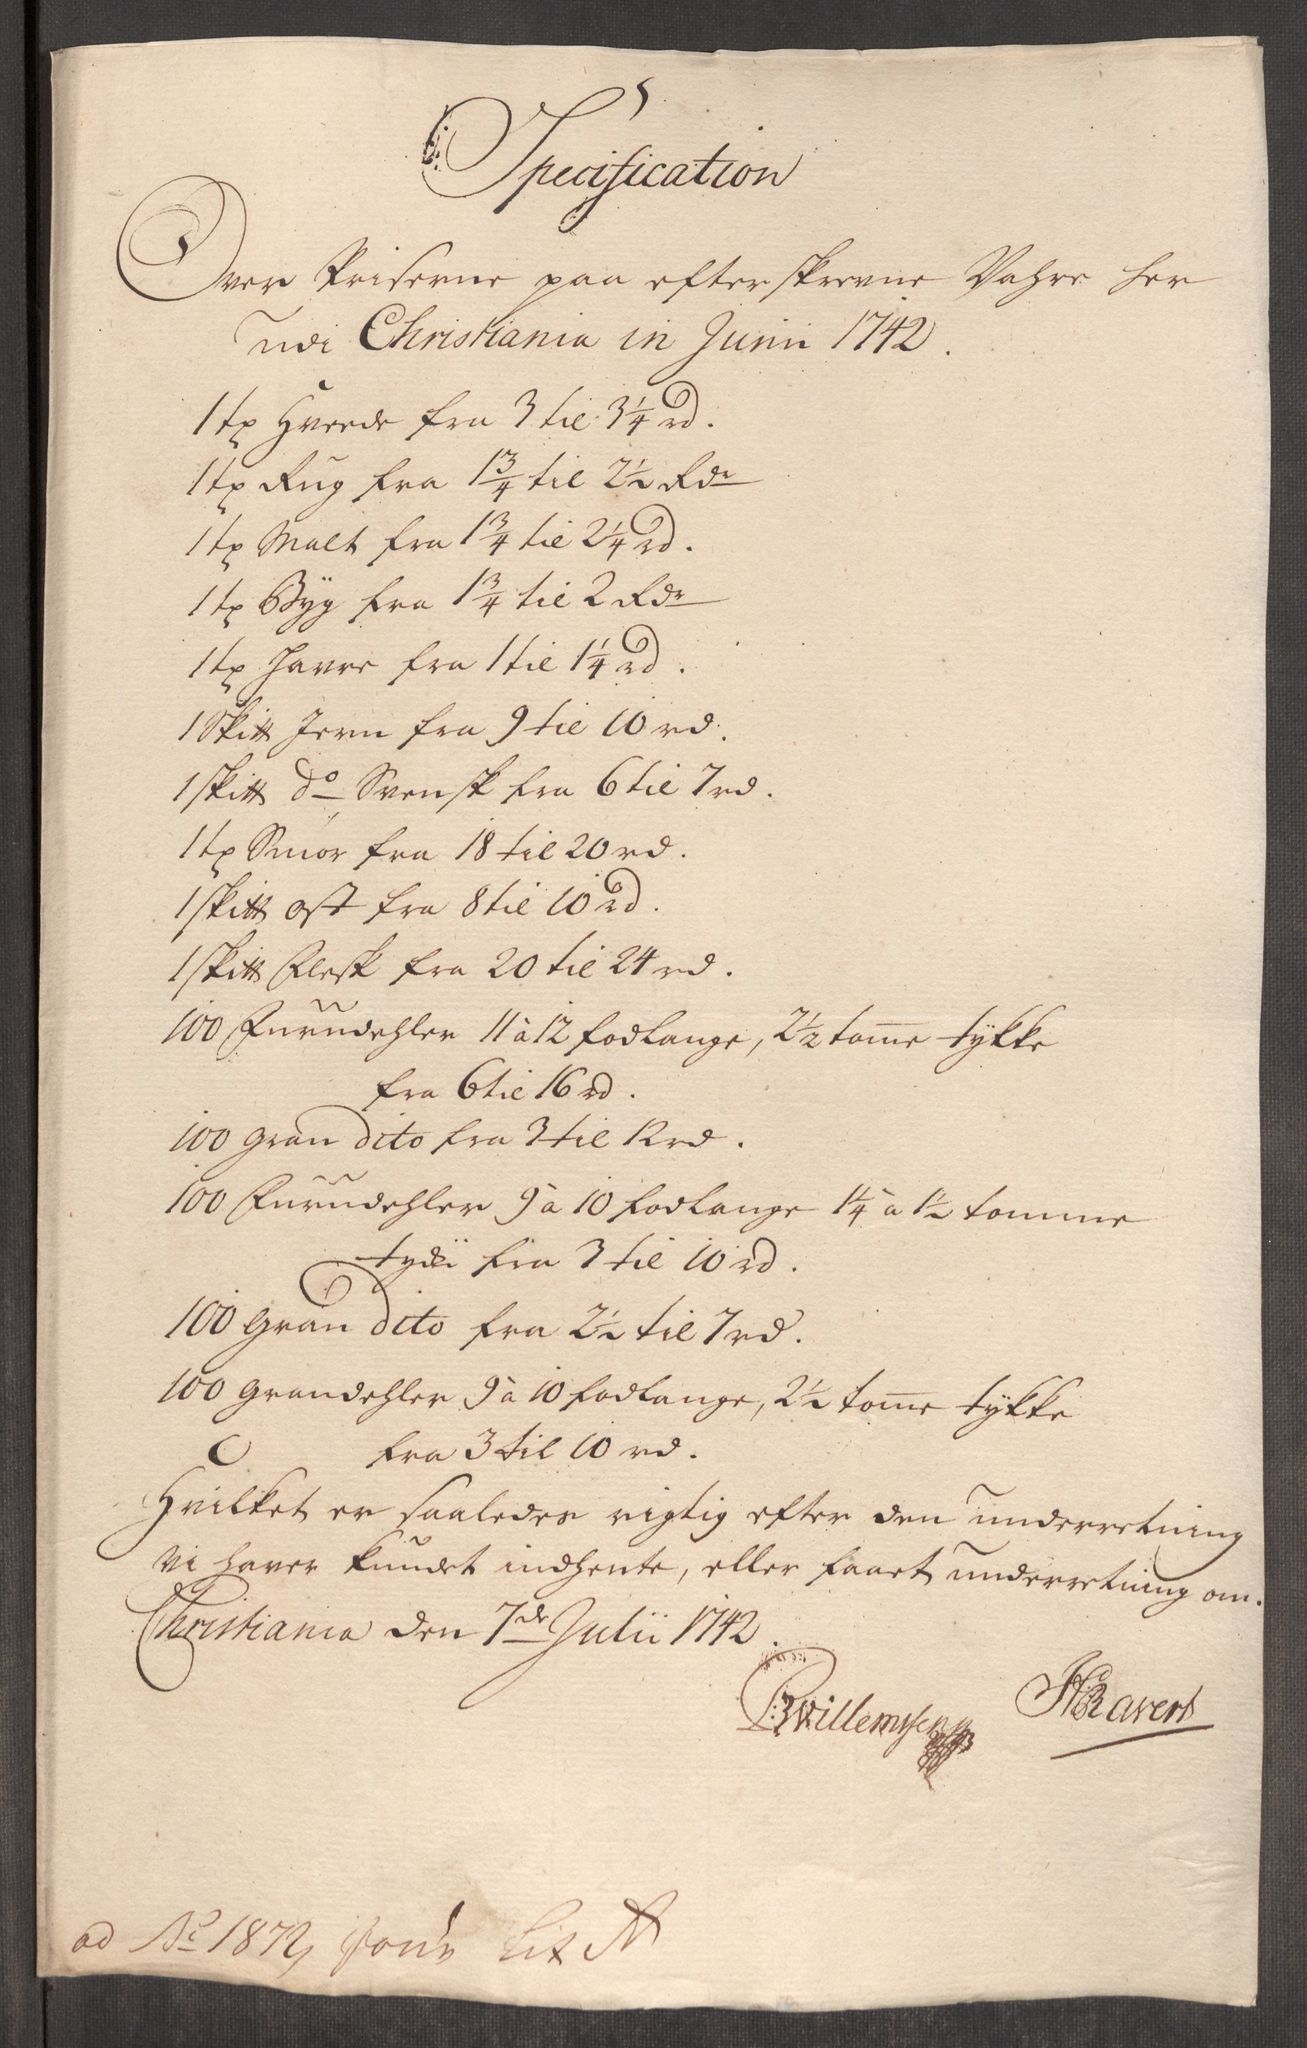 Specification
Over Priserne paa efterskrevne Vahre her
udi Christiania in Junii 1742.
1 tø Hvede fra 3 til 3¼ rd.
1 tø Rug fra 1¾ til 2½ Rdr
1 tø Malt fra 1¾ til 2¼ rd.
1 tø Byg fra 1¾ til 2 Rdr
1 tø Havre fra 1 til 1¼ rd.
1 Skitt Jern fra 9 til 10 rd.
1 skitt do Svensk fra 6 til 7 rd.
1 tø Smör fra 18 til 20 rd.
1 skitt ost fra 8 til 10 rd.
1 skitt Flesk fra 20 til 24 rd.
100 Furudehler 11 à 12 fodlange, 2½ tome tykke
fra 6 til 16 rd.
100 Gran dito fra 3 til 12 rd.
100 Furudehler 9 à 10 fodlange 1¼ à 1½ tomme
fra 3 til 10 rd.
100 Gran dito fra 2½ til 7 rd.
100 Grandehler 9 à 10 fodlange, 2½ tome tykke
fra 3 til 10 rd.
Hvilket er saaledes rigtig efter den underretning
vi haver kundet indhente, eller faaet underretning om.
Christiania den 7de Julii 1742.
Willemsen HRavert
ad No 1872 Lit A